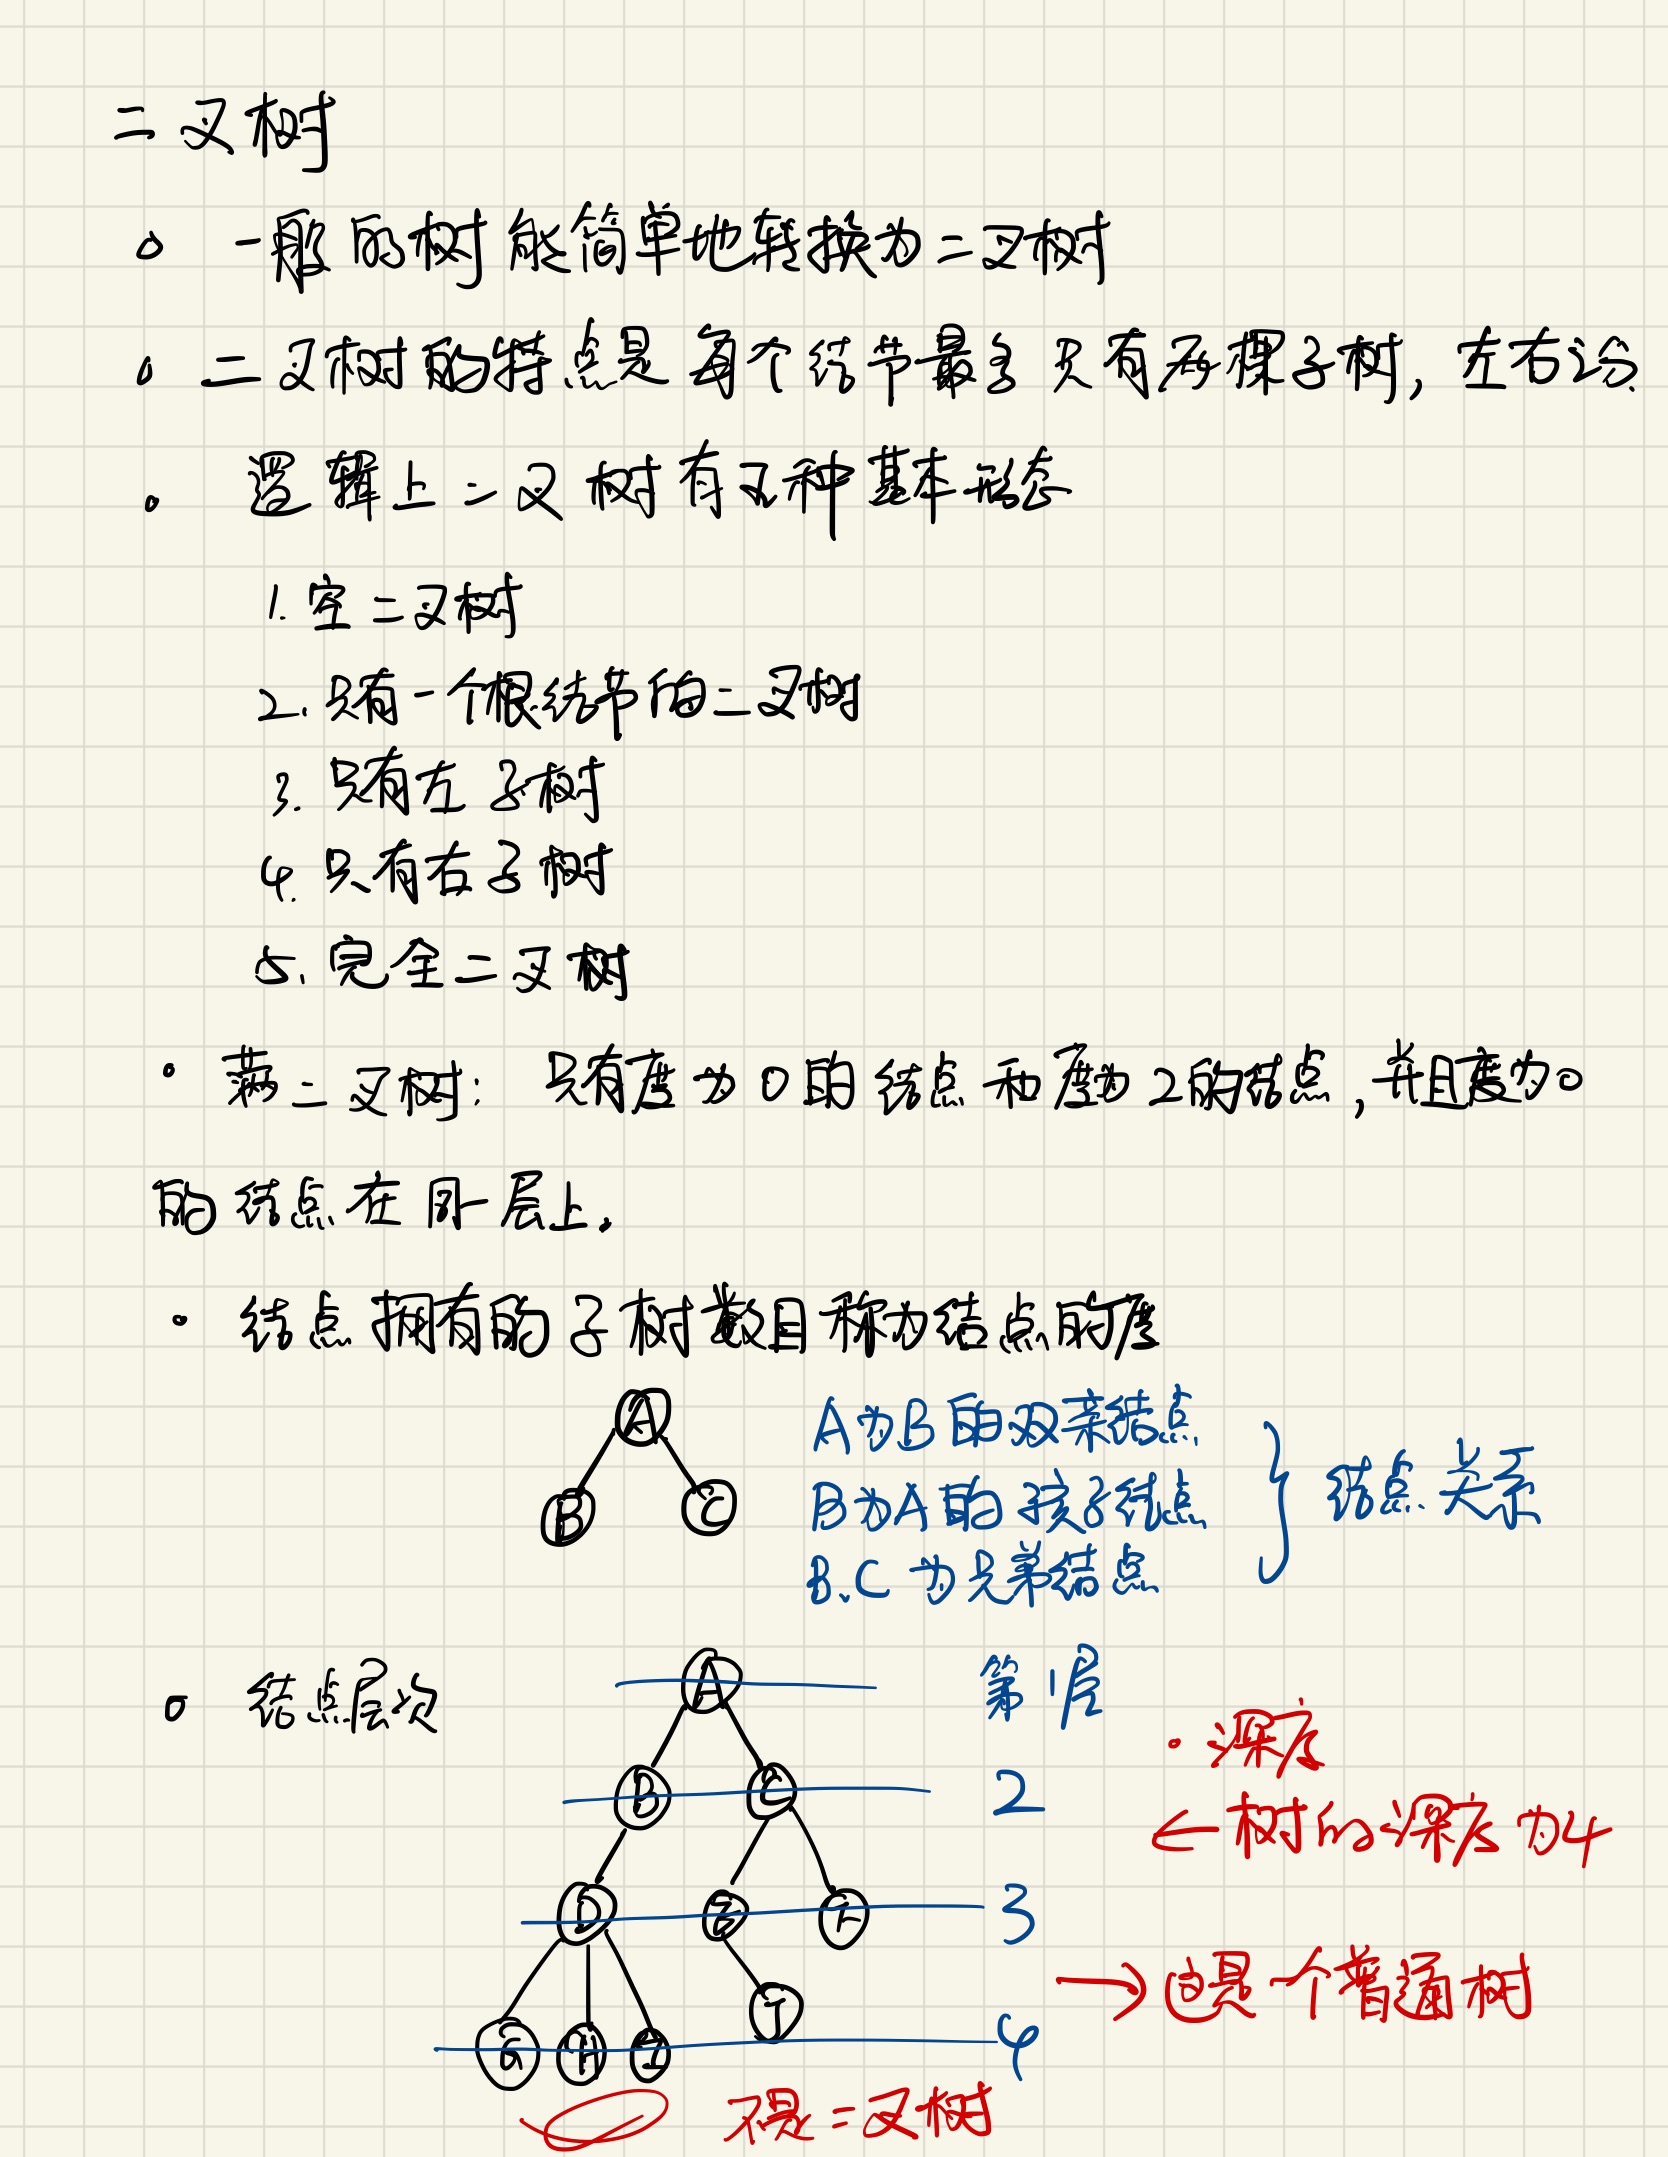 二叉树
一般的树能简单地转换为二叉树
二叉树的特点是每个结节最多只有两棵子树,左右之分
逻辑上二叉树有五种基本形态
1. 空二叉树
2. 只有一个根结节的二叉树
3. 只有左子树
4. 只有右子树
5. 完全二叉树
满二叉树: 只有度为0的结点和度为2的结点,并且度为0
的结点在同一层上.
结点拥有的子树数目称为结点的度
A
B C
A为B的双亲结点
B为A的孩子结点
B.C为兄弟结点
结点关系
结点层次
A 第1层
深度
B C 2
←树的深度为4
D E F 3
→这是一个普通树
J
G H I 4
不是二叉树